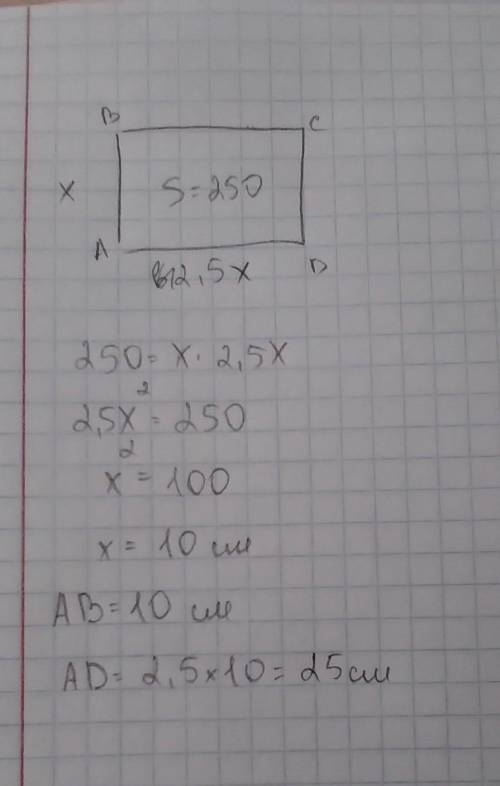 B C
x S=250
A D
2,5x
250= x · 2,5x
2,5x²=250
x²=100
x= 10 см
AB=10 см
AD= 2,5×10=25см